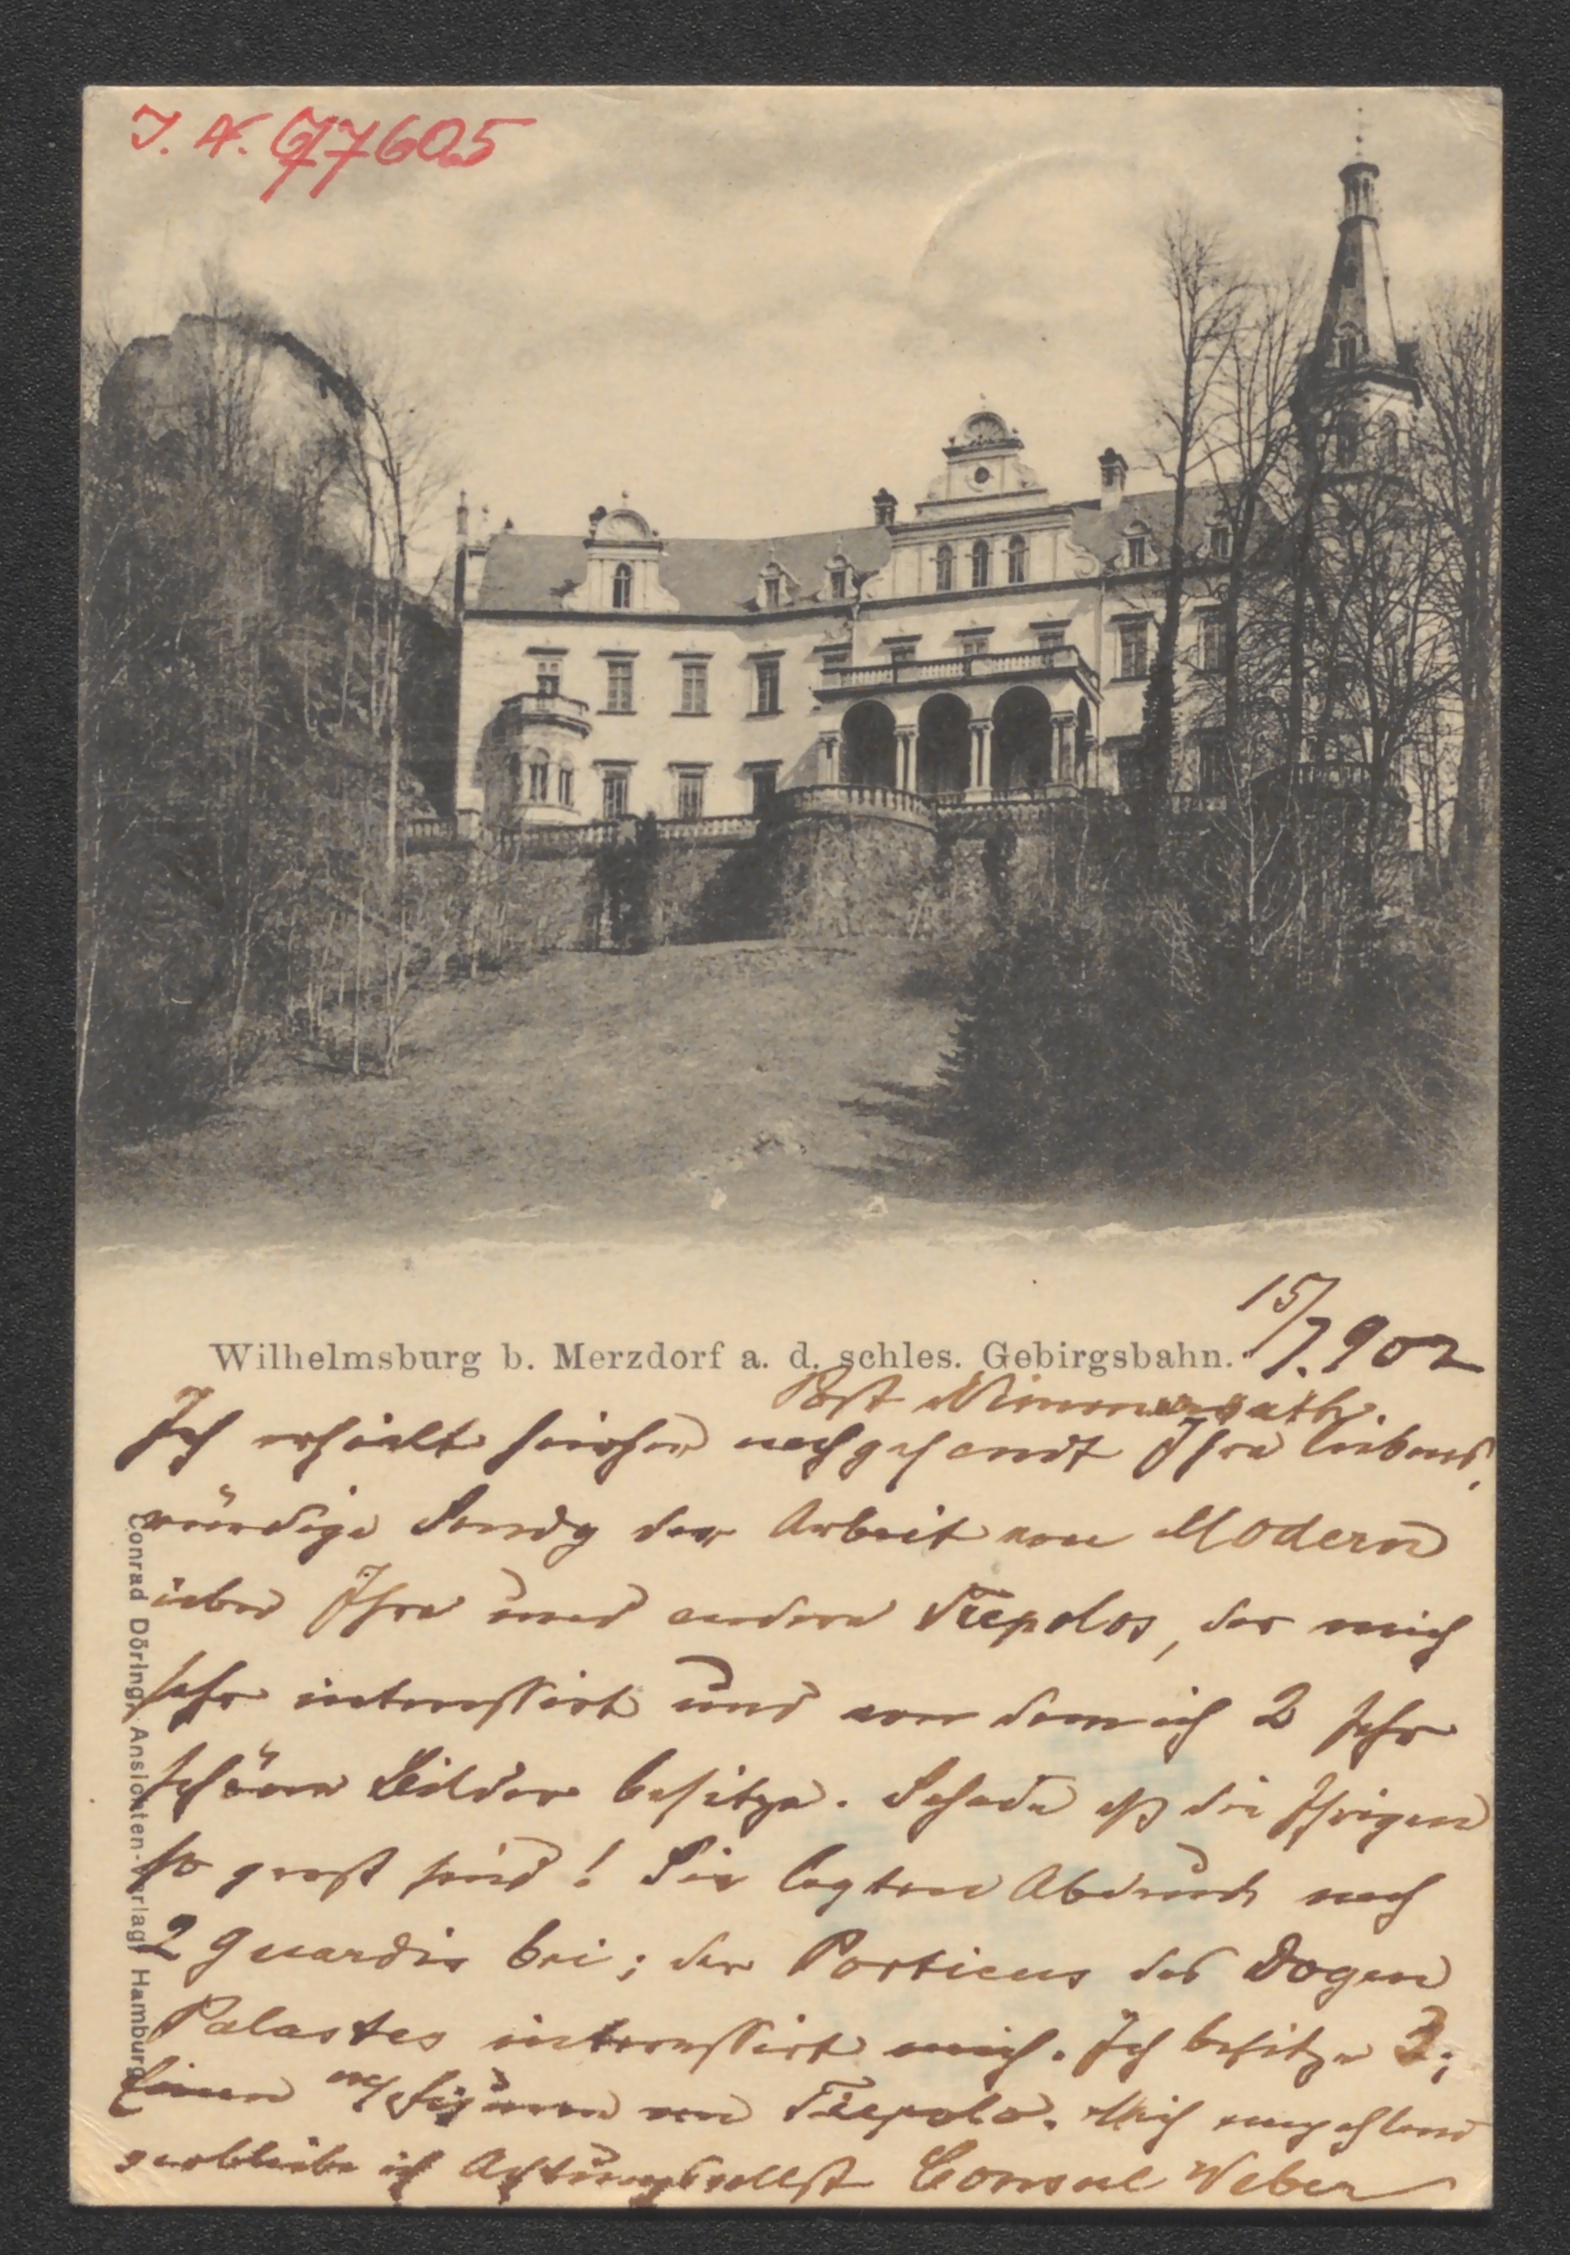 J. N. 77605
15/7. 902
Wilhelmsburg b. Merzdorf a. d. schles. Gebirgsbahn.
Post
Ich erhielt hierher nachgesandt Ihre liebens
würdige Sendg der Arbeit von Modern
über Ihre und andere Tiepolos, der mich
sehr interessirt und von dem ich 2 sehr
schöne Bilder besitze. Schade dß die Ihrigen
so groß sind! Sie legten Abdruck nach
2 Guardis bei; der Porticus des Dogen
Palastes interessirt mich. Ich besitze 3;
Einen m/ Figuren von Tiepolo. Mich empfehlend
verbleibe ich Achtungsvollst Consul Weber
Conrad Döring, Ansichten-Verlag, Hamburg